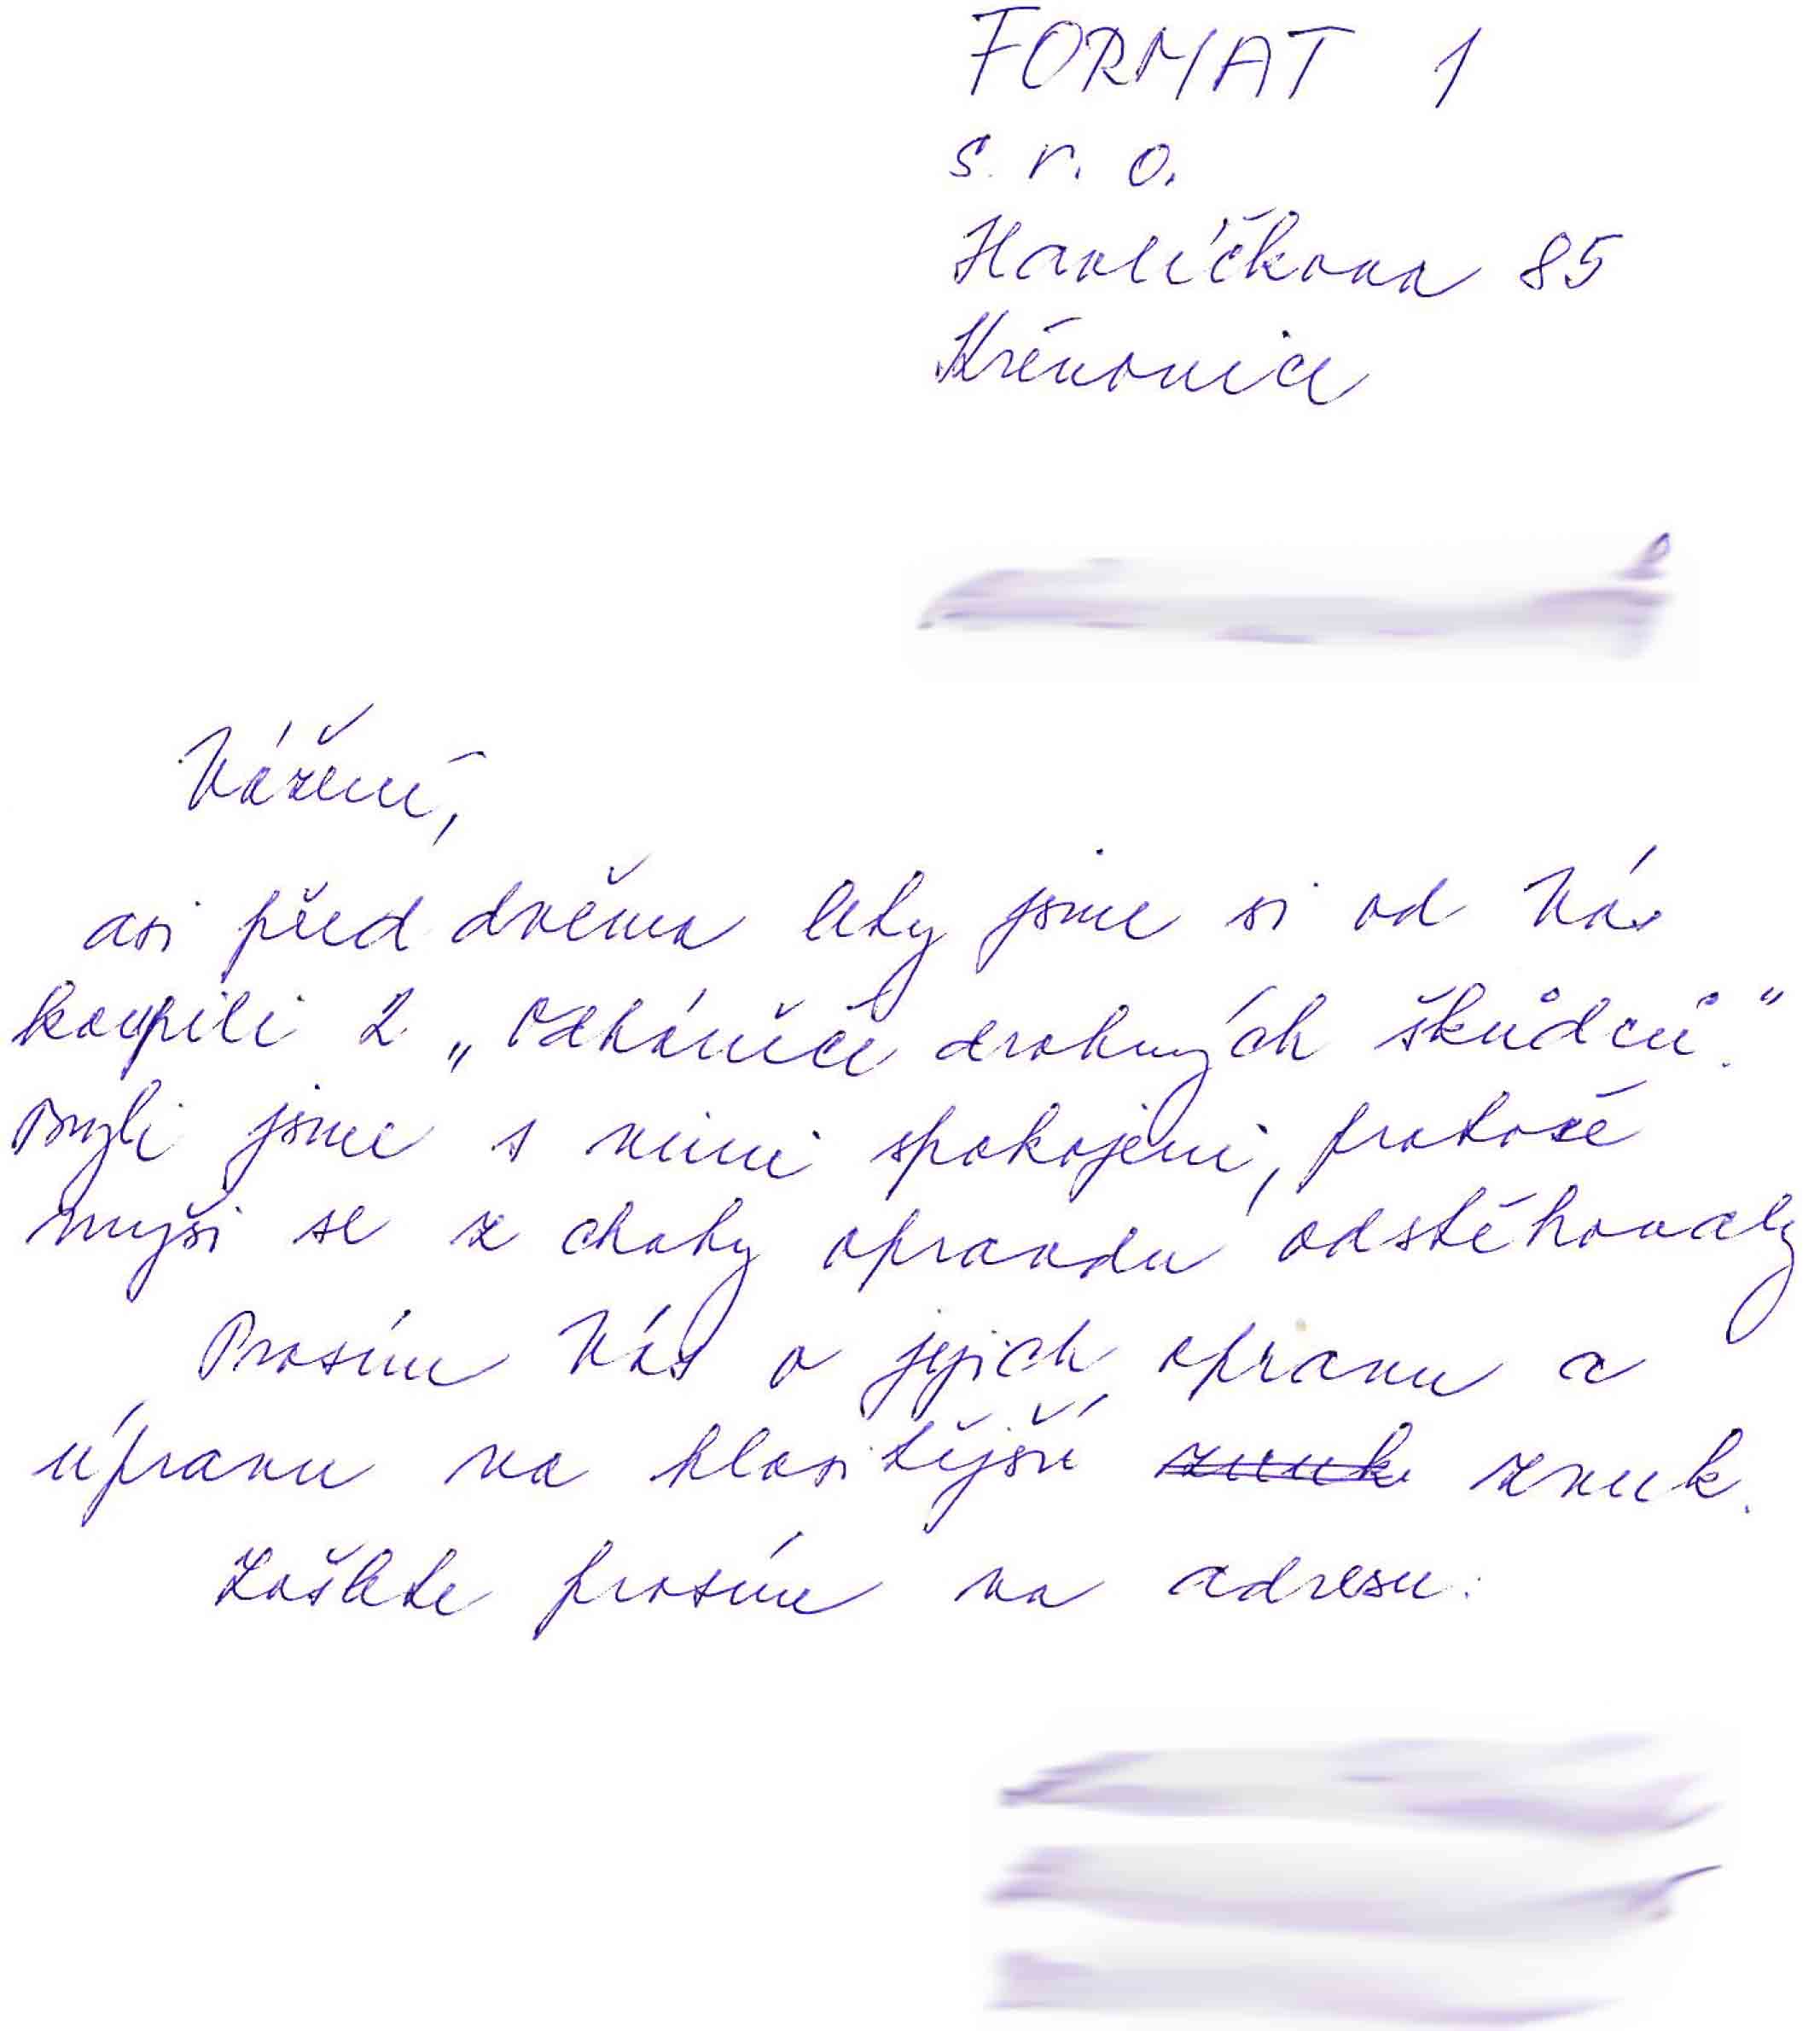 FORMAT 1
s. r. o.
Havlíčkova 85
Křenovice
Vážení,
asi před dvěma lety jsme si od Vás
koupili 2 „Odháněče drobných škůdců."
Byli jsme s nimi spokojeni, protože
myši se z chaty opravdu odstěhovaly
Prosím Vás o jejich opravu a
úpravu na hlasitější zvuk zvuk.
Zašlete prosím na adresu: